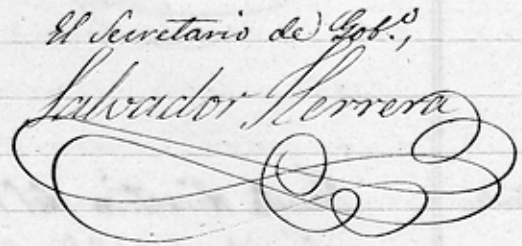 El Secretario de Gob.º,
Salvador Herrera